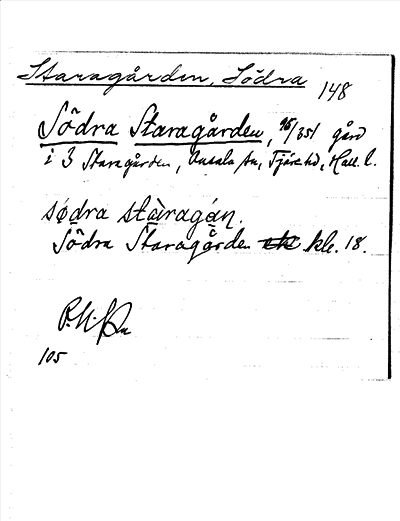 Staragården, Södra
148
Södra Staragården, 95/351 gård
i 3 Staragården, Ousala sn, Fjäre hd, Hall. l.
södra stàragán.
Södra Staragården kle. 18.
105